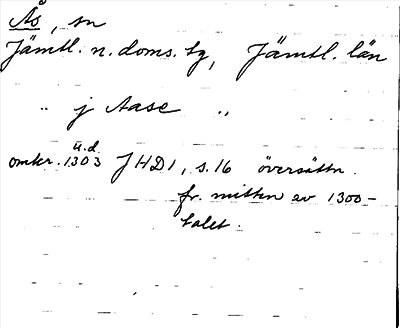 Ås, sn
Jämtl. n. doms. tg, Jämtl. län
.. j Aase ..
u.d.
omkr. 1303 JHD1, s. 16 översättn.
fr. mitten av 1300-
talet.